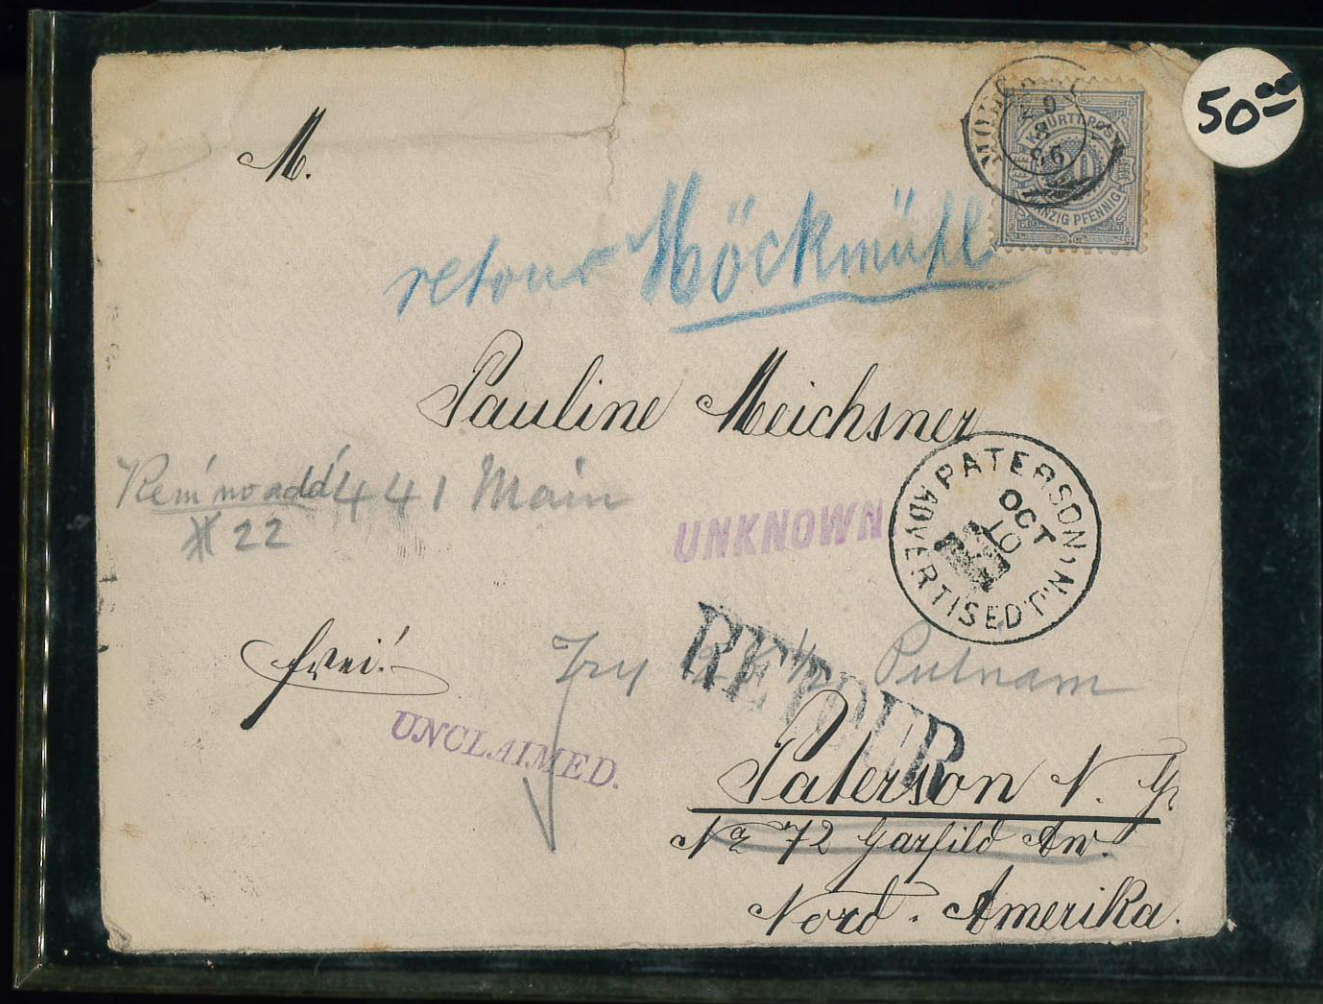 50.00
K. WÜRTT. POST
ZWANZIG PFENNIG
M.
retour Möckmühl
Pauline Meichsner
Rem' no add' 441 Main
# 22
UNKNOWN
PATERSON, N.J.
OCT
10
ADVERTISED
frei!
Try Putnam
RETOUR
UNCLAIMED.
Paterson N.
No 72 Garfild Av.
Nord. Amerika.